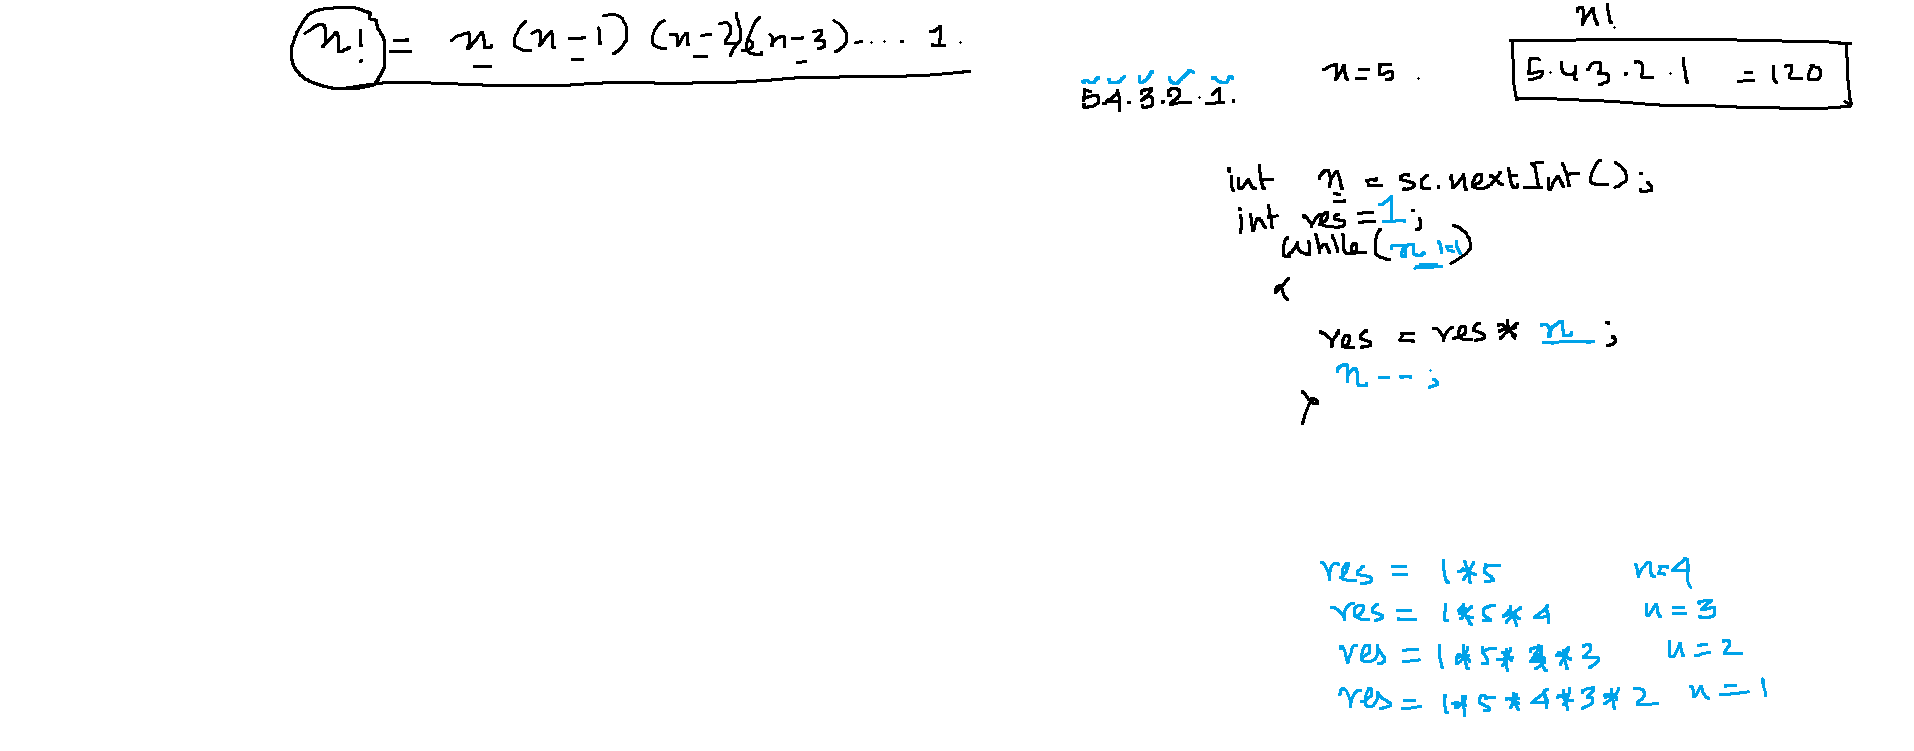 n! = n (n-1) (n-2)(n-3).... 1.
n!
5.4.3.2.1.
n=5.
5.43.2.1 = 120
int n = sc.nextInt();
int res = 1;
while(n != 1)
{
res = res * n;
n--;
}
res = 1*5 n=4
res = 1*5*4 n=3
res = 1*5*4*3 n=2
res = 1*5*4*3*2 n=1